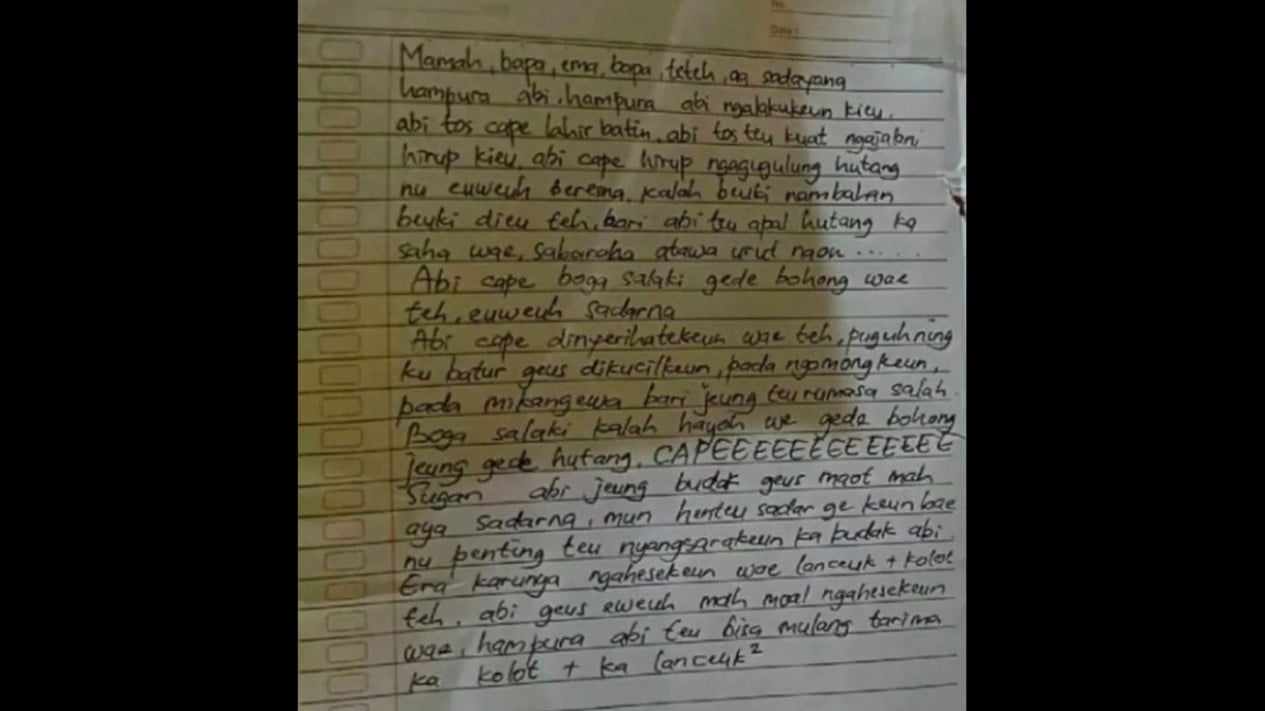 No.
Date:
Mamah, bapa, ema, bapa, teteh, aa sadayang
hampura abi. hampura abi ngalakukeun kieu.
abi tos cape lahir batin. abi tos teu kuat ngajalani
hirup kieu. abi cape hirup ngagugulung hutang
nu euweuh berema. kalah beuki nambahan
beuki dieu teh, bari abi teu apal hutang ka
saha wae, sabaraha atawa urut naon .....
Abi cape boga salaki gede bohong wae
teh, euweuh sadarna
Abi cape dinyerihatekeun wae teh, puguhning
ku batur geus dikucilkeun, pada ngomongkeun,
pada mikangewa bari jeung teu rumasa salah.
Boga salaki kalah hayoh we gede bohong
jeung gede hutang. CAPEEEEEEEEEEEEEE
Sugan abi jeung budak geus maot mah
aya sadarna, mun henteu sadar ge keun bae
nu penting teu nyangsarakeun ka budak abi.
Era karunga ngahesekeun wae lanceuk + kolot
teh, abi geus eweuh mah moal ngahesekeun
wae, hampura abi teu bisa mulang tarima
ka kolot + ka lanceuk²